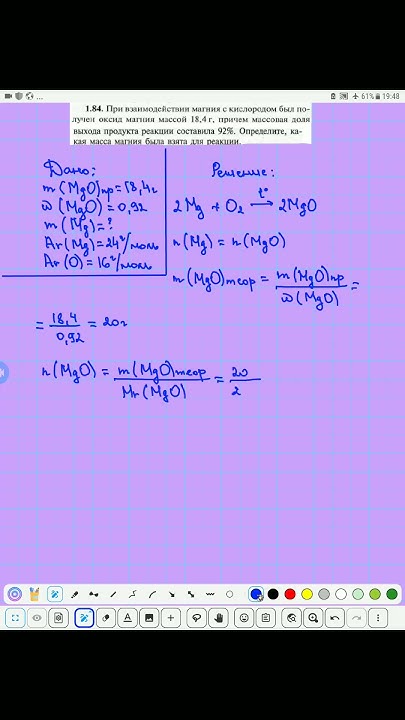 61% 19:48
1.84. При взаимодействии магния с кислородом был по-
лучен оксид магния массой 18,4 г, причем массовая доля
выхода продукта реакции составила 92%. Определите, ка-
кая масса магния была взята для реакции.
Дано:
m(MgO)пр=18,4г
ω(MgO)=0,92
m(Mg)=?
Ar(Mg)=24г/моль
Ar(O)=16г/моль
Решение:
t°
2Mg + O₂ → 2MgO
n(Mg) = n(MgO)
m(MgO)теор = m(MgO)пр / ω(MgO) =
= 18,4 / 0,92 = 20г
n(MgO) = m(MgO)теор / Mr(MgO) = 20 / 2